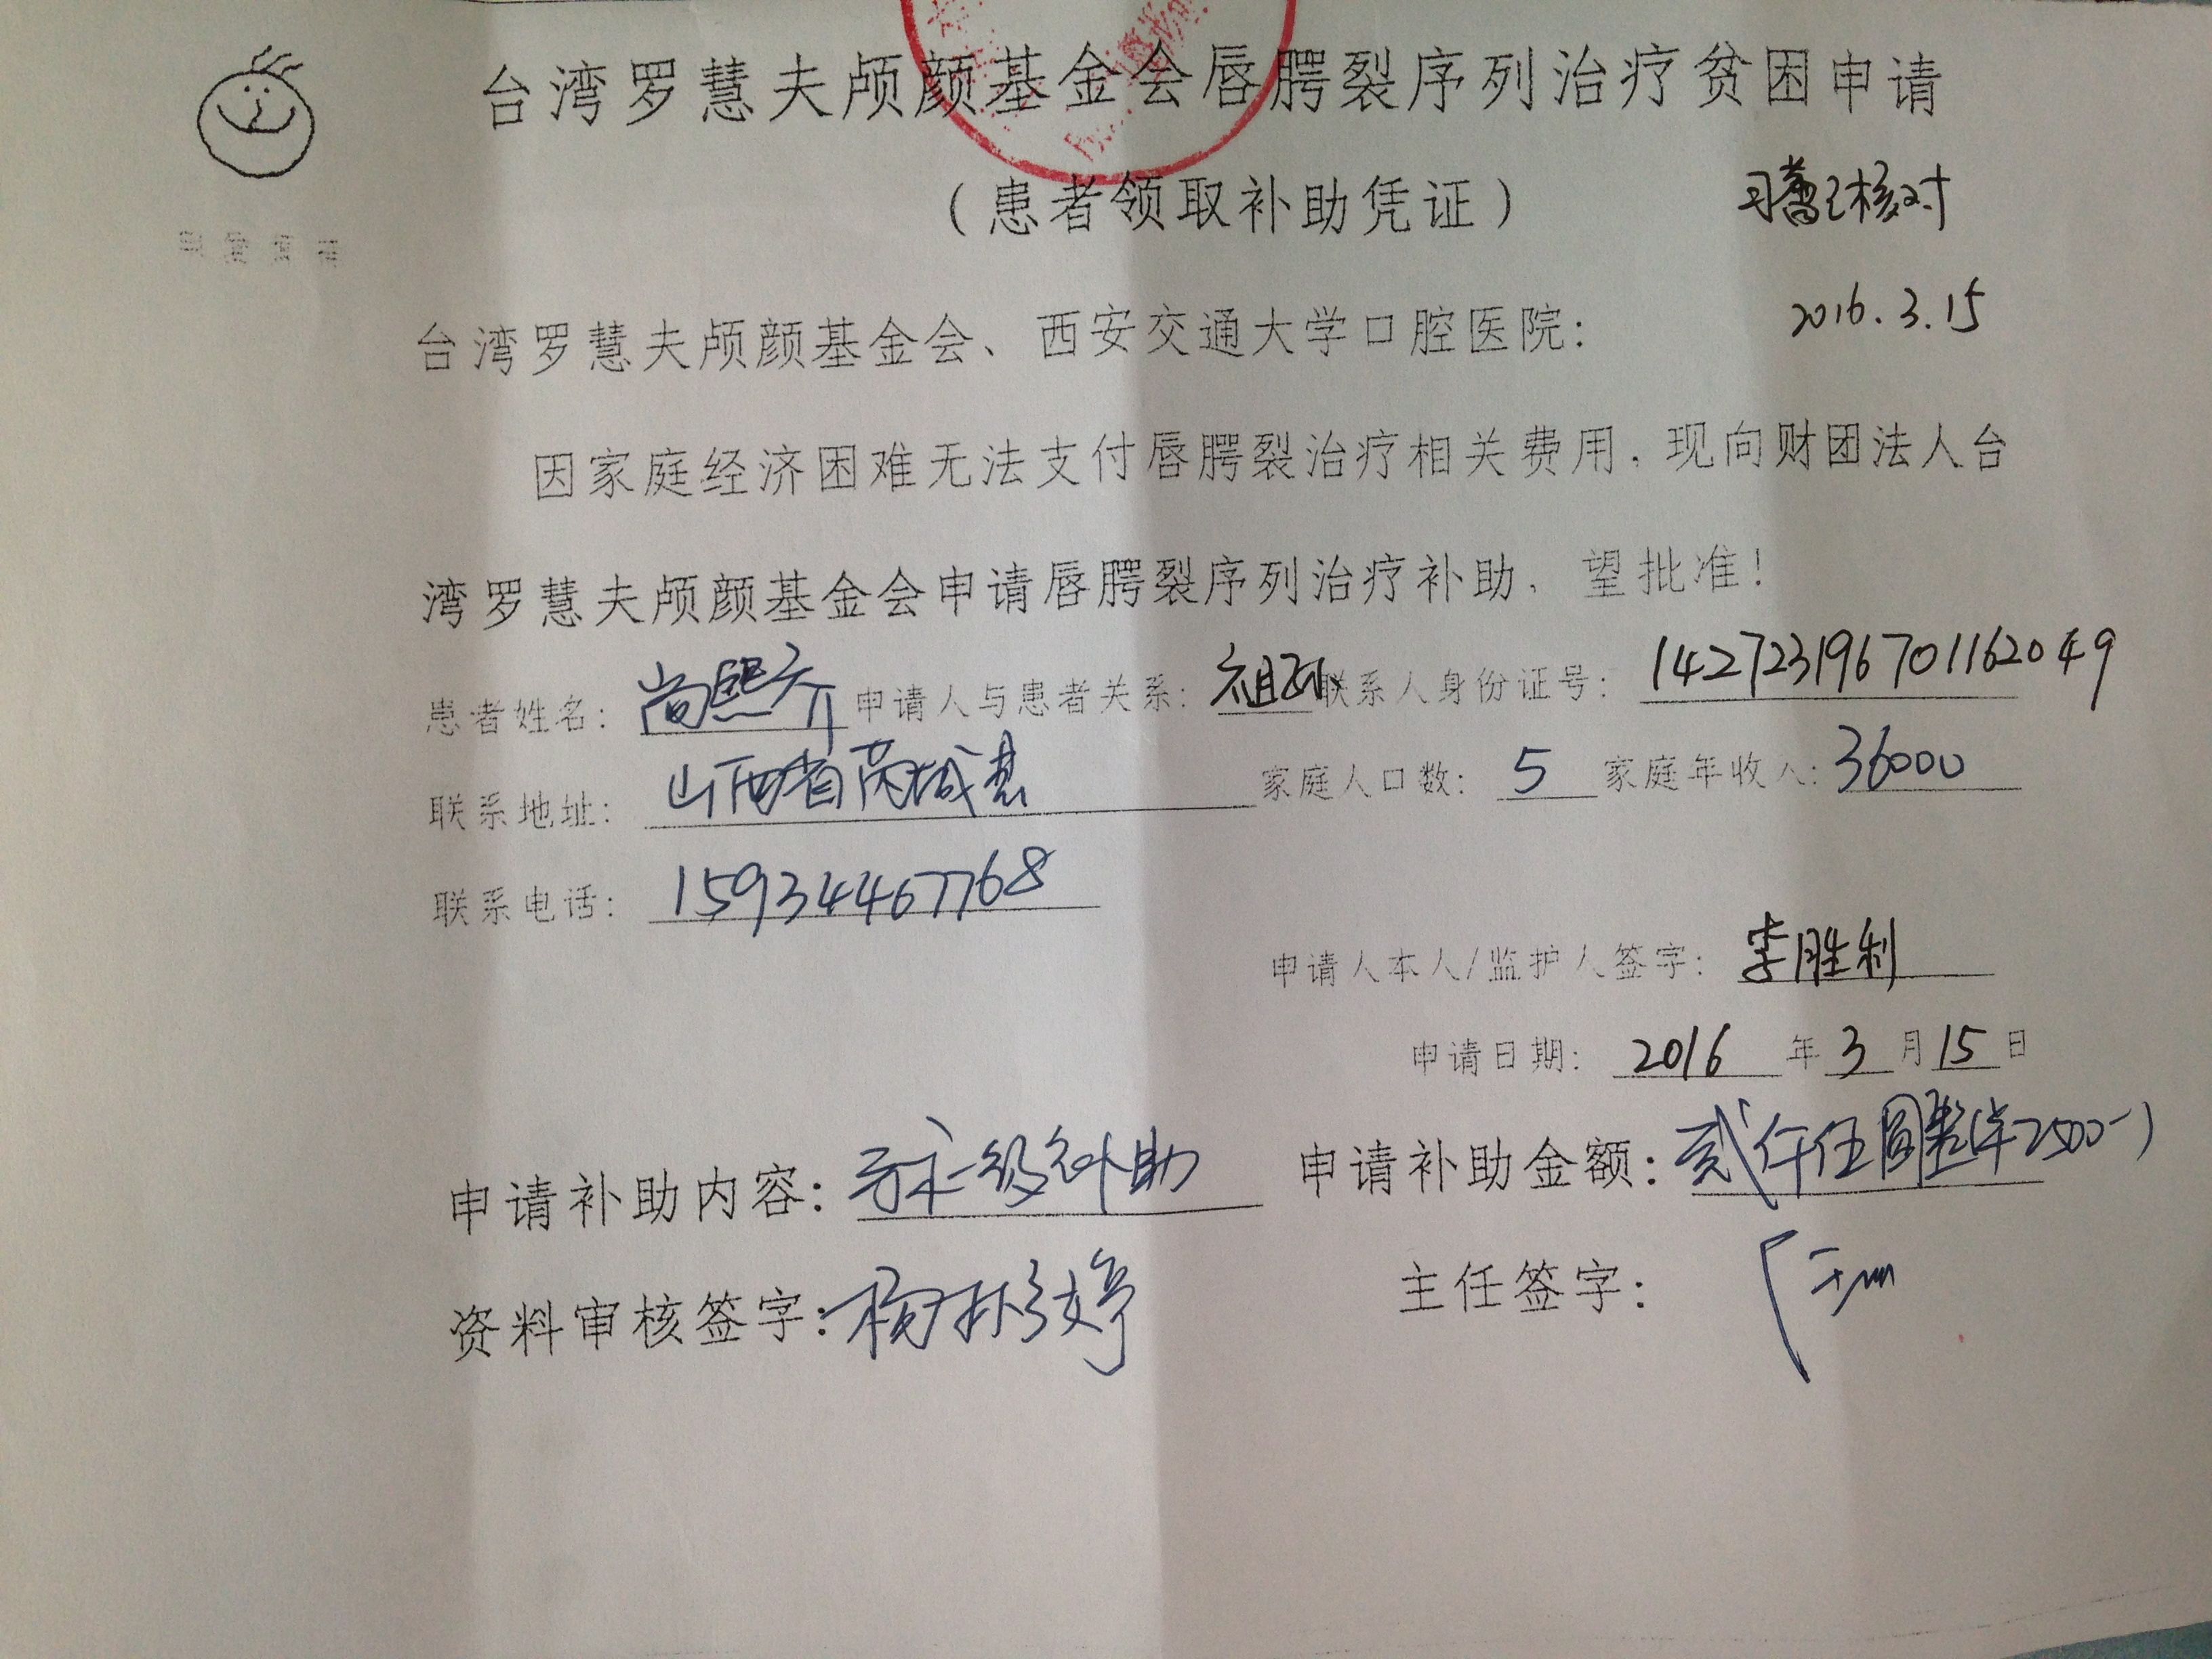 台湾罗慧夫颅颜基金会唇腭裂序列治疗贫困申请
(患者领取补助凭证)
已核对
2016.3.15
台湾罗慧夫颅颜基金会、西安交通大学口腔医院:
因家庭经济困难无法支付唇腭裂治疗相关费用,现向财团法人台
湾罗慧夫颅颜基金会申请唇腭裂序列治疗补助,望批准!
患者姓名: 尚熙乔 申请人与患者关系: 祖孙 联系人身份证号: 142723196701162049
联系地址: 山西省芮城县 家庭人口数: 5 家庭年收入: 36000
联系电话: 15934467768
申请人本人/监护人签字: 李胜利
申请日期: 2016 年 3 月 15 日
申请补助内容: 手术一级补助 申请补助金额: 贰仟伍圆整(¥2500-)
资料审核签字: 主任签字: